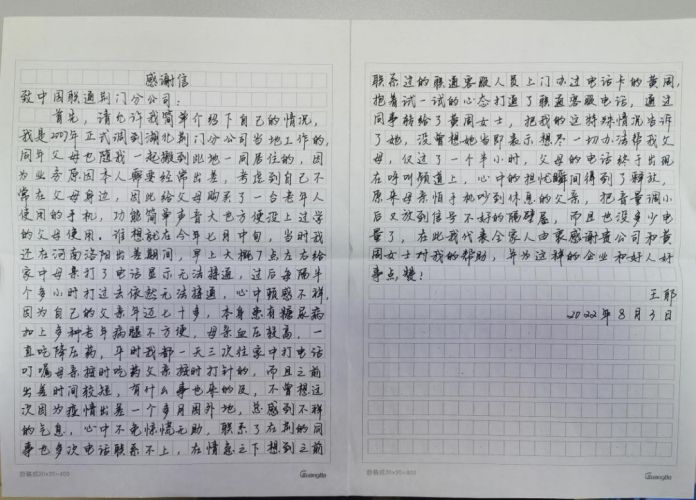 感谢信
致中国联通荆门分公司:
首先,请允许我简单介绍下自己的情况,
我是2007年正式调到湖北荆门分公司当地工作的,
同年父母也随我一起搬到此地一同居住的,因
为业务原因本人需要经常出差,考虑到自己不
常在父母身边,因此给父母购买了一台老年人
使用的手机,功能简单声音大也方便没上过学
的父母使用。谁想就在今年七月中旬,当时我
还在河南洛阳出差期间,早上大概7点左右给
家中母亲打了电话显示无法接通,过后每隔半
个多小时打过去依然无法接通,心中顿感不祥,
因为自己的父亲年迈七十多,本身患有糖尿病
加上多种老年病腿不方便,母亲血压较高,一
直吃降压药,平时我都一天三次往家中打电话
叮嘱母亲按时吃药父亲按时打针的,而且之前
出差时间较短,有什么事也来的及,不曾想这
次因为疫情出差一个多月困外地,总感到不祥
的气息,心中不免惊慌无助,联系了在荆的同
事也多次电话联系不上,在情急之下想到之前
联系过的联通客服人员上门办过电话卡的黄周,
抱着试一试的心态打通了联通客服电话,通过
同事转给了黄周女士,把我的这特殊情况告诉
了她,没曾想她当即表示想尽一切办法帮我父
母,仅过了一个半小时,父母的电话终于出现
在呼叫频道上,心中的担忧瞬间得到了释放,
原来母亲怕手机吵到休息的父亲,把音量调小
后又放到信号不好的隔壁屋,而且也没多少电
量了,在此我代表全家人由衷感谢贵公司和黄
周女士对我的帮助,并为这样的企业和好人好
事点赞!
王耶
2022年8月3日
Guangbo
Guangbo